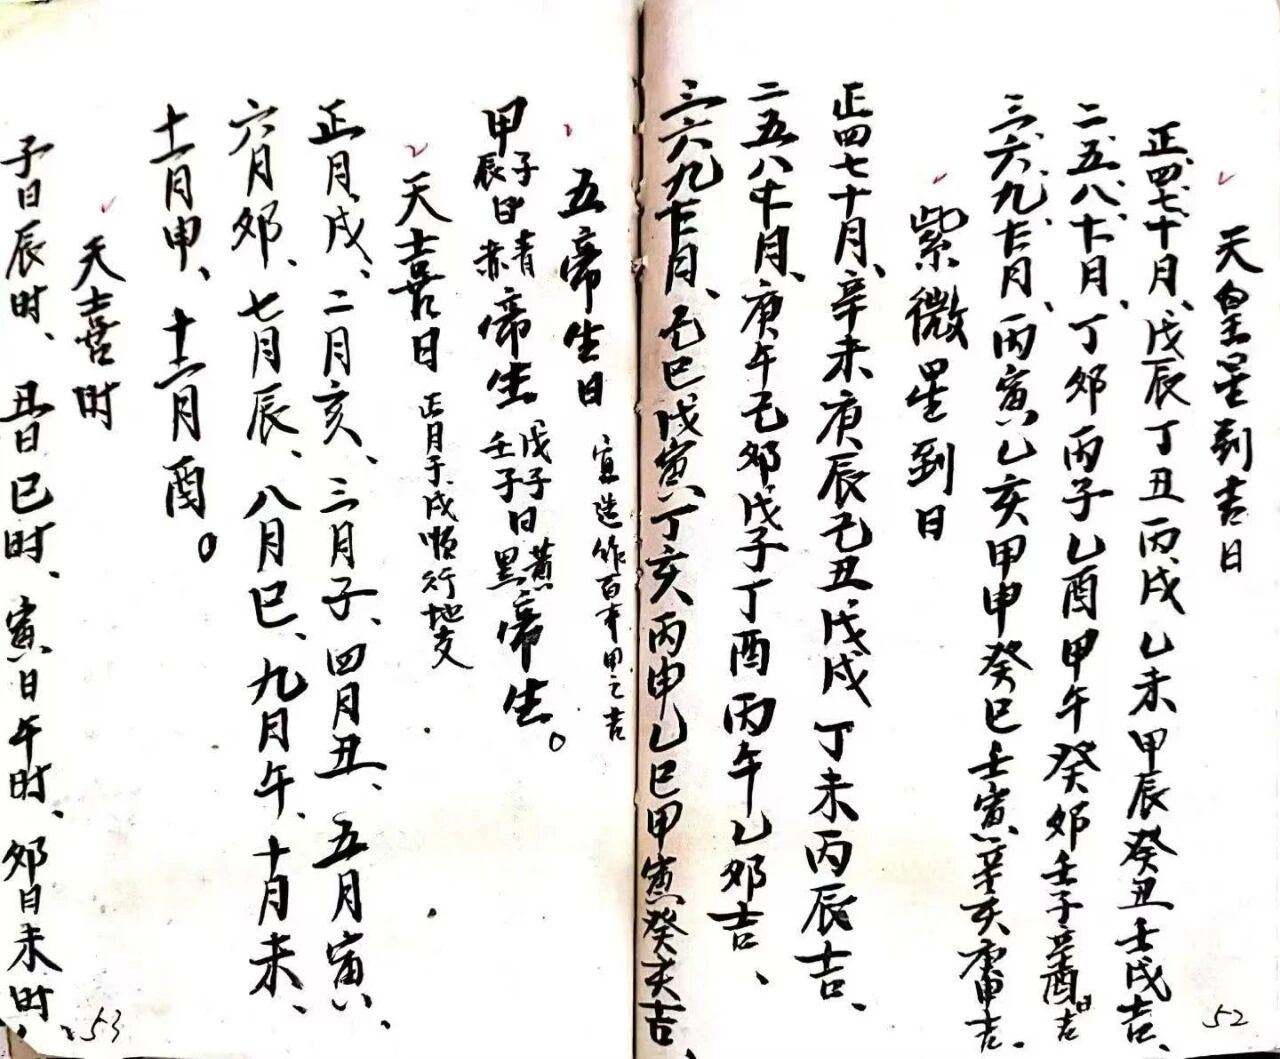 天皇星到吉日
正、四、七、十月、戊辰丁丑丙戌乙未甲辰癸丑壬戌吉、
二、五、八、十一月、丁卯丙子乙酉甲午癸卯壬子辛酉日吉
三、六、九、十二月、丙寅乙亥甲申癸巳壬寅辛亥庚申吉.
紫微星到日
正四七十月、辛未庚辰己丑戊戌丁未丙辰吉、
二五八十一月、庚午己卯戊子丁酉丙午乙卯吉、
三六九十二月、己巳戊寅丁亥丙申乙巳甲寅癸亥吉、
52
五帝生日 宜造作百事用之吉
甲子日青帝生 甲辰日赤帝生 戊子日黄帝生 壬子日黑帝生。
天喜日 正月于戌顺行地支
正月戌、二月亥、三月子、四月丑、五月寅、
六月卯、七月辰、八月巳、九月午、十月未、
十一月申、十二月酉。
天喜时
子日辰时、丑日巳时、寅日午时、卯日未时、
53